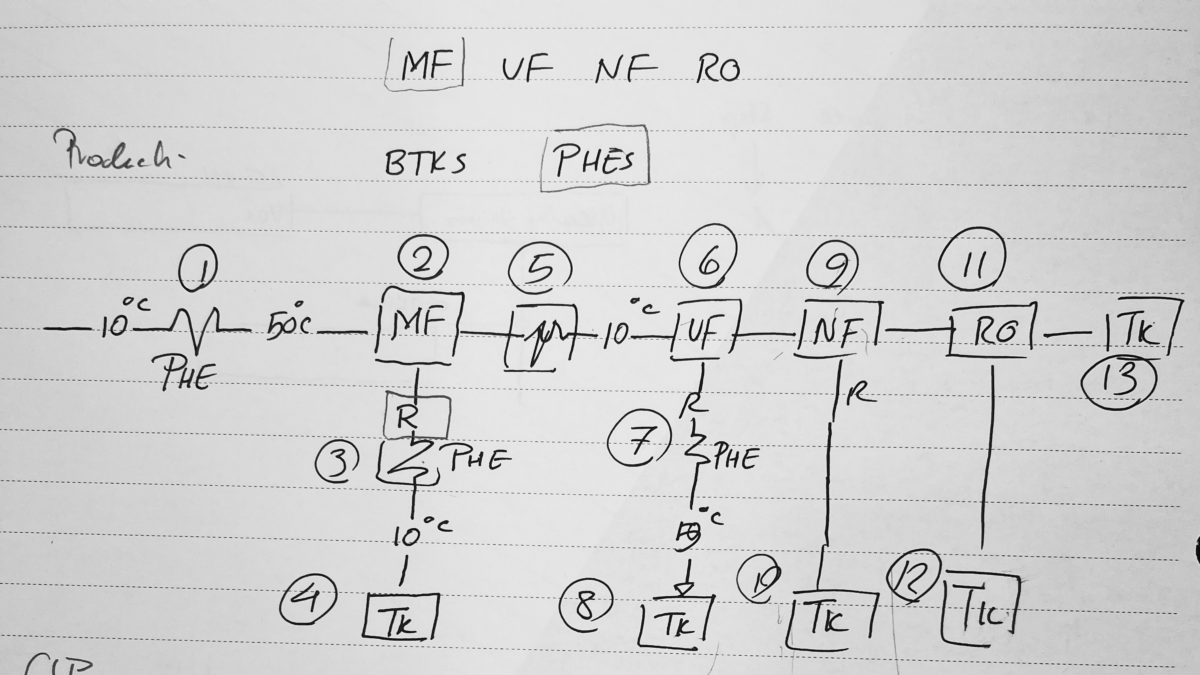 MF UF NF RO
BTKS PHES
1 2 5 6 9 11
10°C 50°C MF 10°C UF NF RO TK
PHE 13
R R R
3 PHE 7 PHE
10°C °C
4 TK 8 TK 10 TK 12 TK
CIP